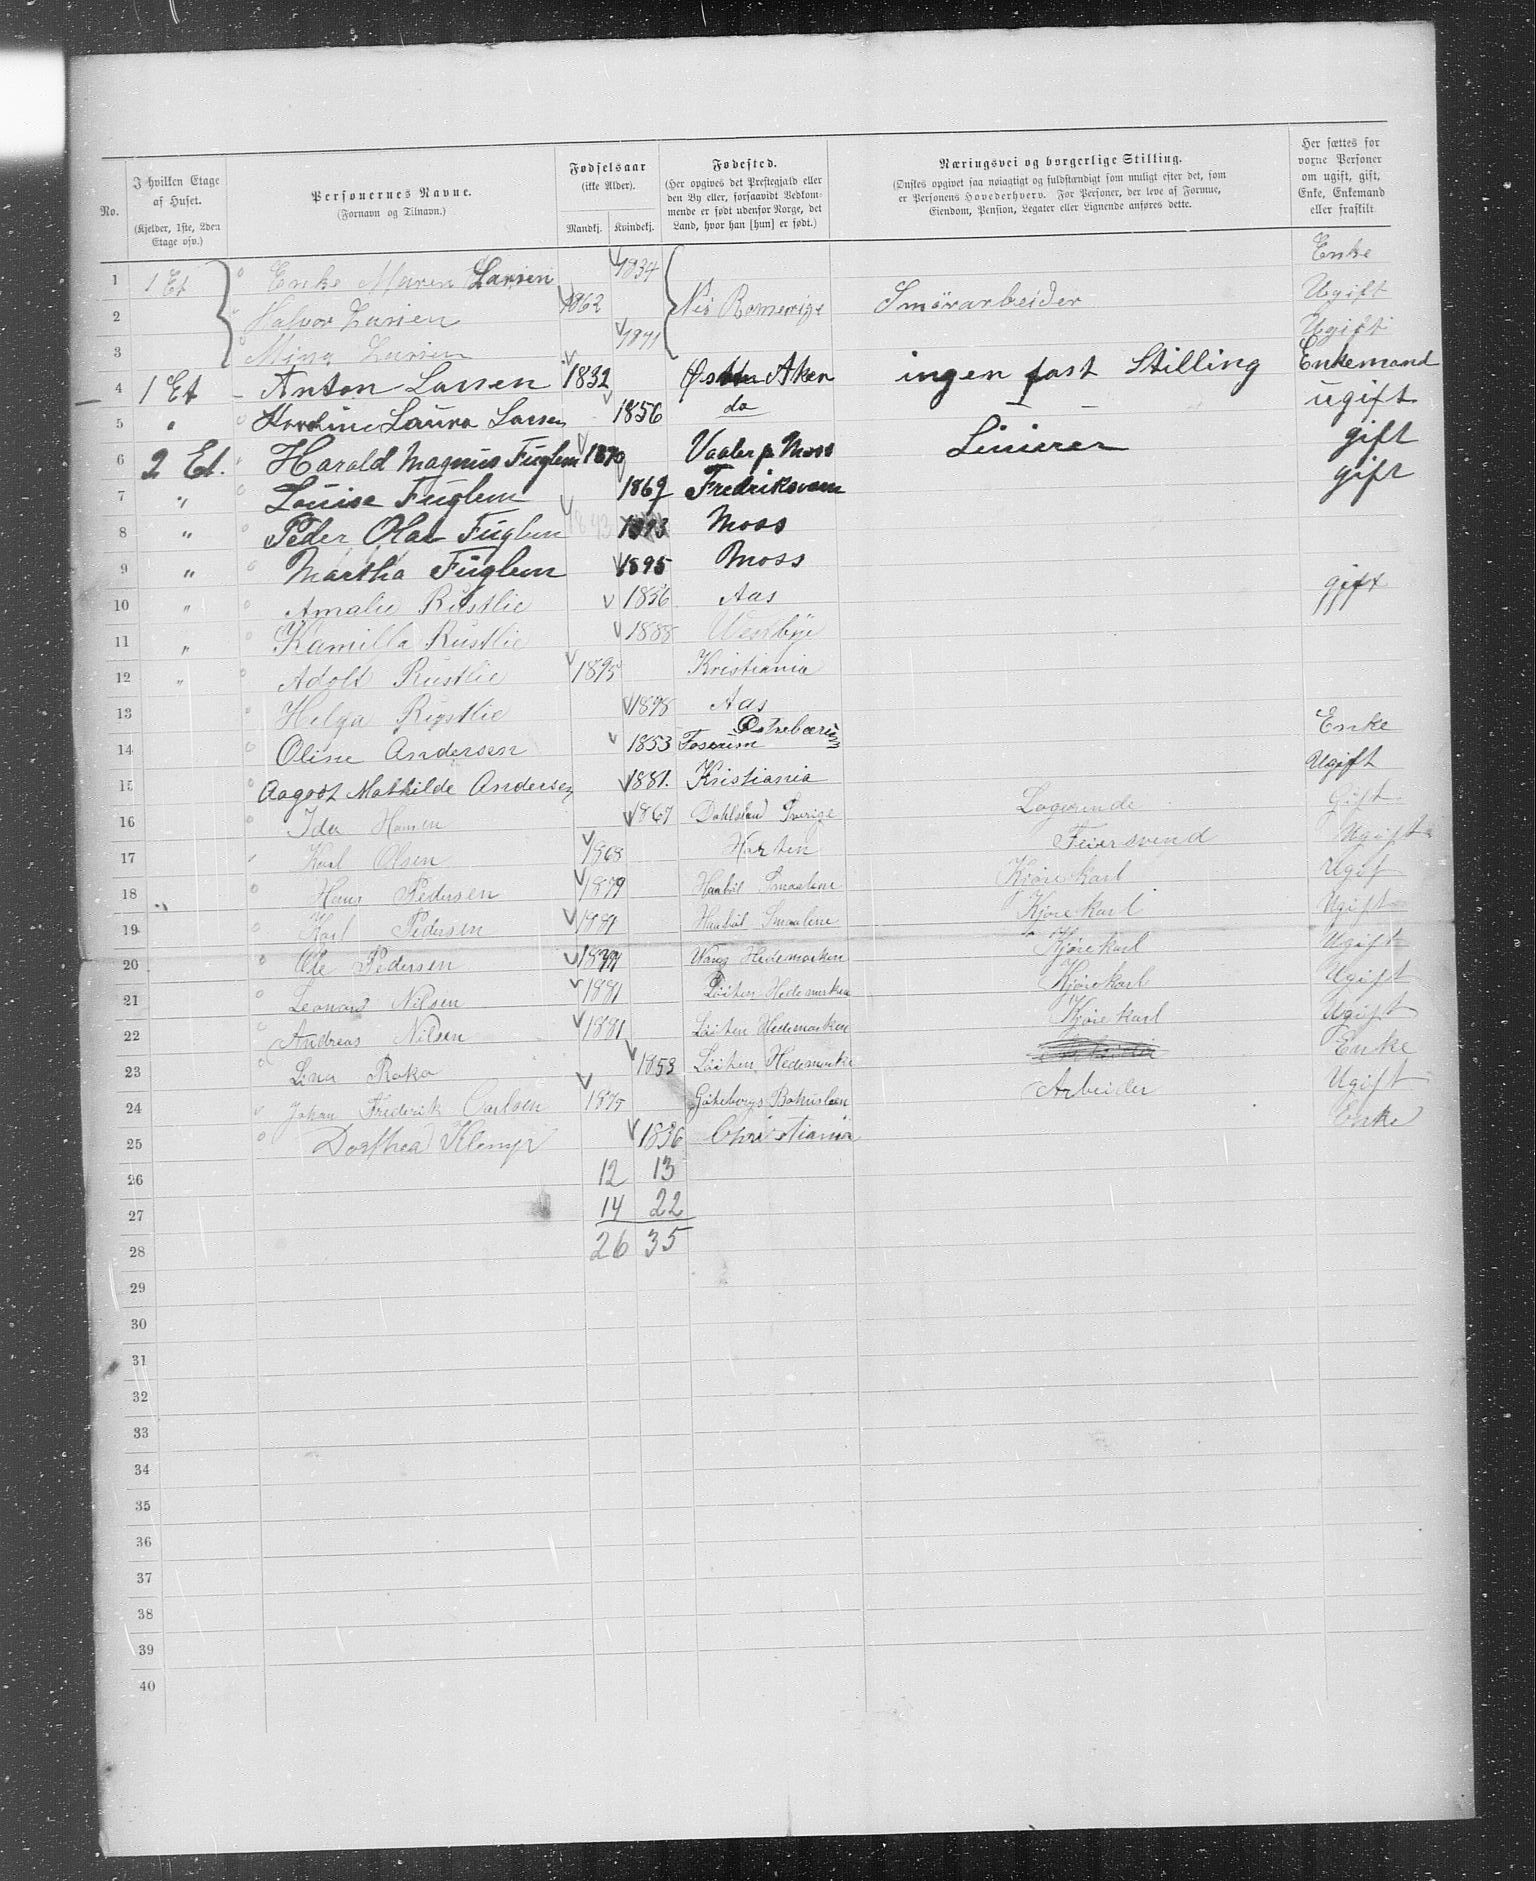 No.
I hvilken Etage af Huset. (Kjelder, 1ste, 2den Etage osv.)
Personernes Navne. (Fornavn og Tilnavn.)
Fødselsaar (ikke Alder).
Mandkj. Kvindekj.
Fødested. (Her opgives det Prestegjald eller den By eller, forsaavidt Vedkommende er født udenfor Norge, det Land, hvor han [hun] er født.)
Næringsvei og borgerlige Stilling. (Ønskes opgivet saa nøiagtigt og fuldstændigt som muligt efter det, som er Personens Hovederhverv. For Personer, der leve af Formue, Eiendom, Pension, Legater eller Lignende anføres dette.
Her sættes for voxne Personer om ugift, gift, Enke, Enkemand eller fraskilt
1 1 Et Enke Maren Larsen 1834 Enke
2 Halvor Larsen 1862 Nes Romerige Smörarbeider Ugift
3 Mina Larsen 1871 Ugift
4 1 Et Anton Larsen 1832 Østre Aker ingen fast Stilling Enkemand
5 " Laura Larsen 1856 do — — ugift
6 2 Et. Harald Magnus Fuglem 1870 Vaaler p Moss Linierer gift
7 " Louise Fuglem 1869 Fredriksværn gift
8 " Peder Olaf Fuglem 1893 1893 Moss
9 " Martha Fuglem 1895 Moss
10 " Amalie Rustlie 1856 Aas gift
11 " Kamilla Rustlie 1888 Westbye
12 " Adolf Rustlie 1895 Kristiania
13 Helga Rustlie 1898 Aas
14 Oline Andersen 1853 Enke
15 Aagodt Mathilde Andersen 1881. Kristiania Ugift
16 Ida Hansen 1867 Dahlsland Sverige Logerende Gift
17 Karl Olsen 1868 Horten Feiersvend Ugift
18 Hans Pedersen 1879 Haabøl Smaalene Kjørekarl Ugift
19 Karl Pedersen 1881 Haabøl Smaalene Kjørekarl Ugift
20 Ole Pedersen Wang Hedemarken Kjørekarl Ugift
21 Leonard Nilsen 1881 Løiten Hedemarken Kjørekarl Ugift
22 Andreas Nilsen 1881 Løiten Hedemarken Kjørekarl Ugift
23 Lina 1853 Løiten Hedemarken Enke
24 Johan Frederik Carlsen 1875 Göteborgs Bohuslæn Arbeider Ugift
25 Dorthea 1836 Christiania Enke
26 12 13
27 14 22
28 26 35
29
30
31
32
33
34
35
36
37
38
39
40